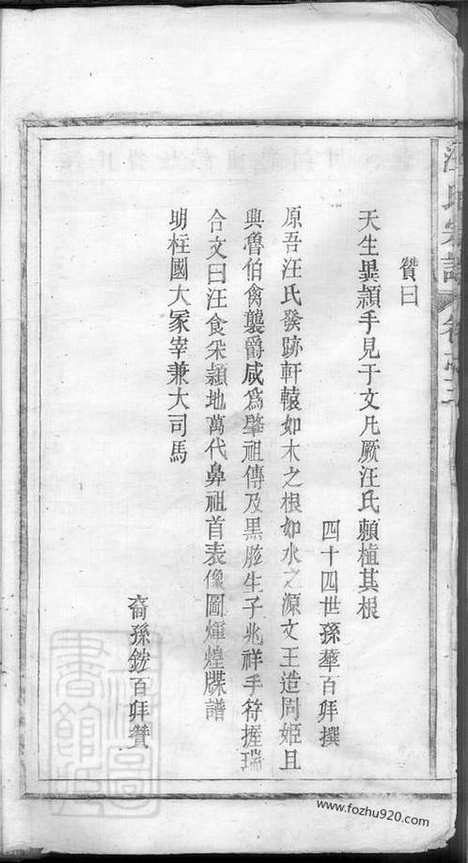 贊曰
天生異頴手見于文凡厥汪氏頼植其根
四十四世孫華百拜撰
原吾汪氏發跡軒轅如木之根如水之源文王造周姬且
典魯伯禽襲爵咸為肇祖傳及黑肱生子兆祥手符握瑞
合文曰汪食采頴地萬代鼻祖首表像圖煇煌牒譜
明柱國大冢宰兼大司馬
裔孫鋐百拜贊
汪氏宗譜
www.fozhu920.com